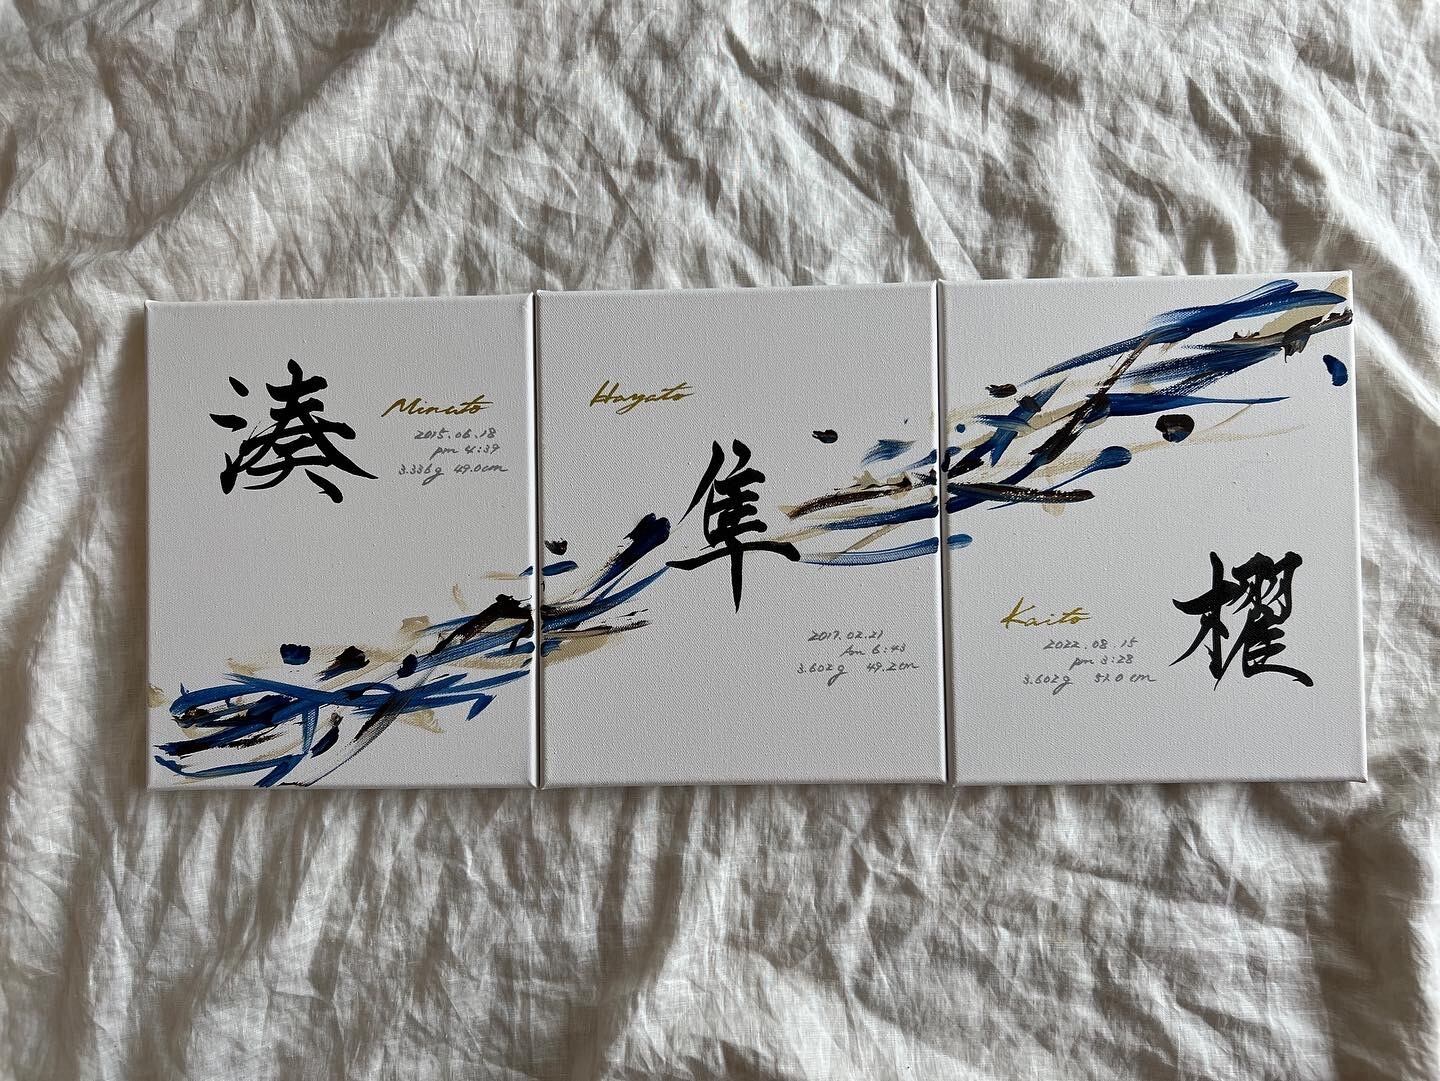 湊
Minato
2015.06.18
pm 4:39
3.336g 49.0cm
Hayato
隼
2017.02.21
Am 6:43
3.602g 49.2cm
Kaito
2022.08.15
pm 3:28
3.602g 51.0cm
櫂